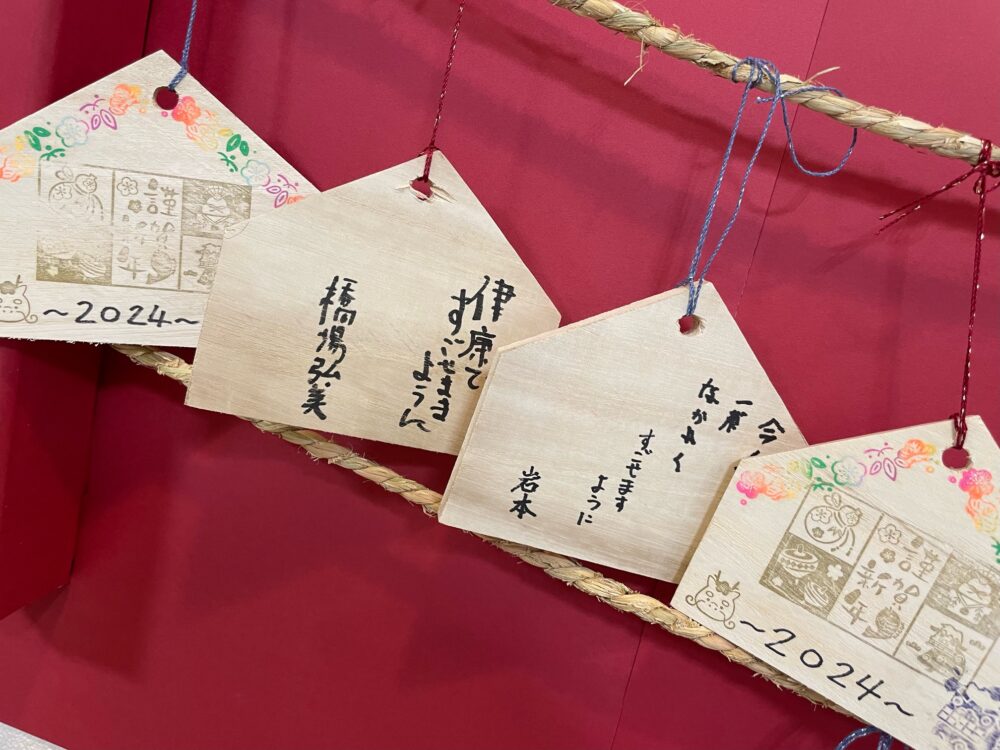 謹賀新年
~2024~
健康で
すごせますように
橋場弘美
今
一年
なかよく
すごせます
ように
岩本
謹賀新年
~2024~